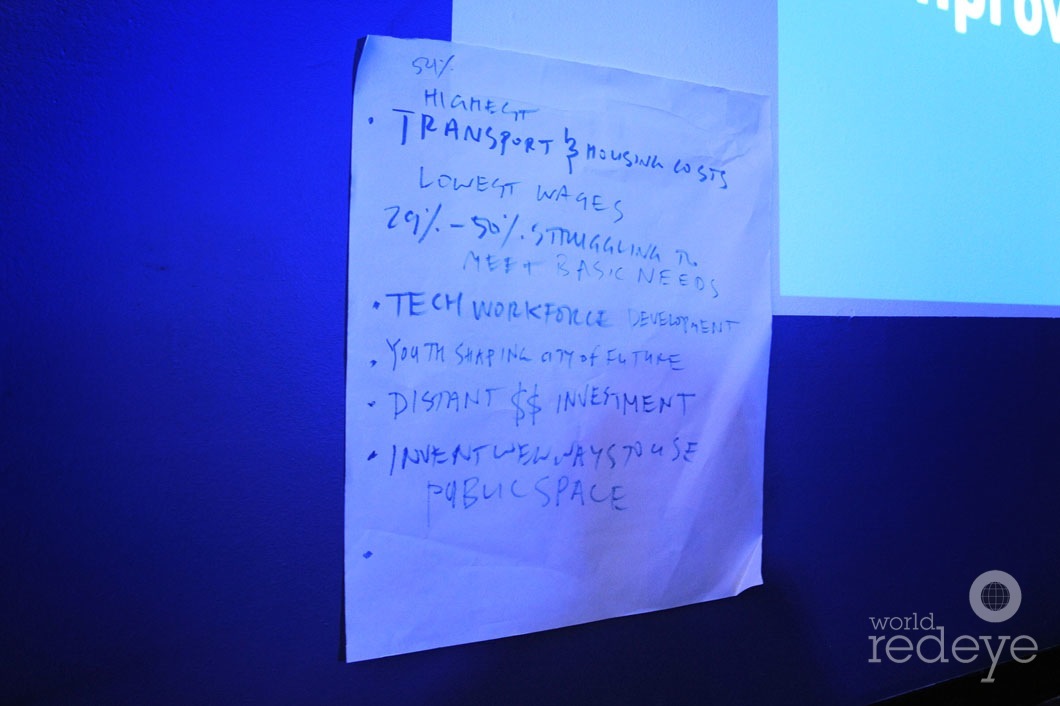 54%
HIGHEST
• TRANSPORT & HOUSING COSTS
LOWEST WAGES
29% - 50% STRUGGLING TO
MEET BASIC NEEDS
• TECH WORKFORCE DEVELOPMENT
• YOUTH SHAPING CITY OF FUTURE
• DISTANT $$ INVESTMENT
• INVENT NEW WAYS TO USE
PUBLIC SPACE
•
world
redeye